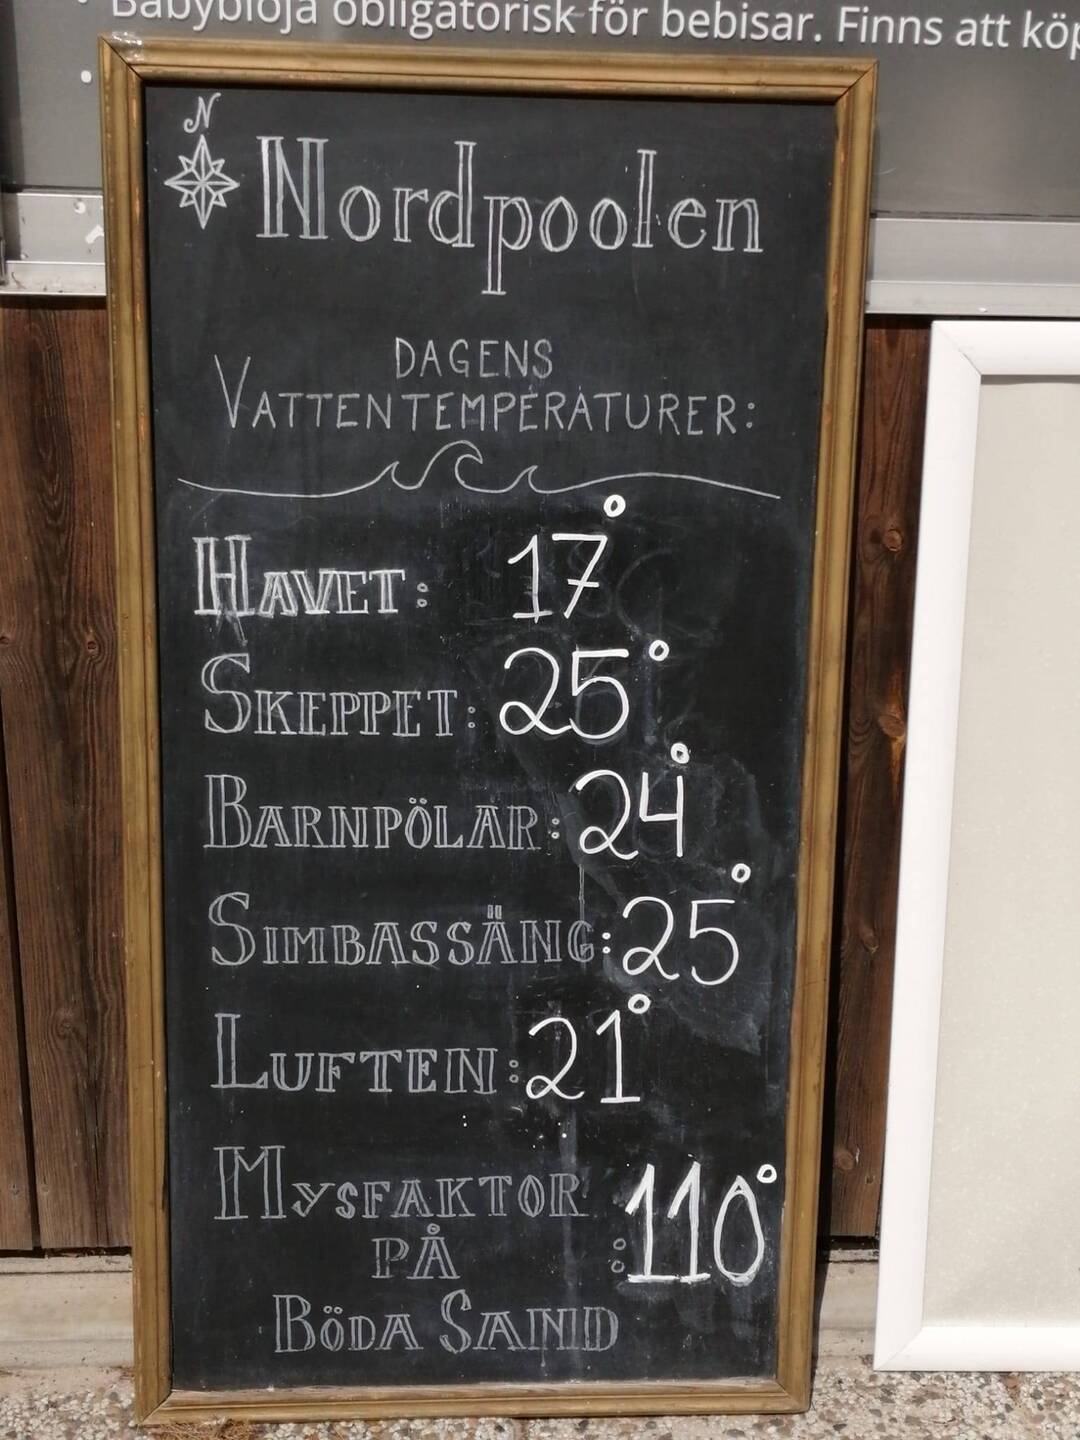 Babyblöja obligatorisk för bebisar. Finns att
N
Nordpoolen
DAGENS
VATTENTEMPERATURER:
HAVET: 17°
SKEPPET: 25°
BARNPÖLAR: 24°
SIMBASSÄNG: 25°
LUFTEN: 21°
MYSFAKTOR
PÅ : 110°
BÖDA SAND